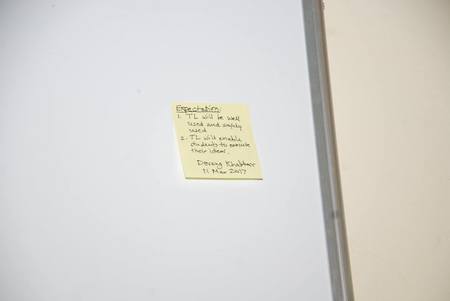 Expectation:
1. TL will be well
used and safely
used
2. TL will enable
students to execute
their ideas.
11 Mar 2017